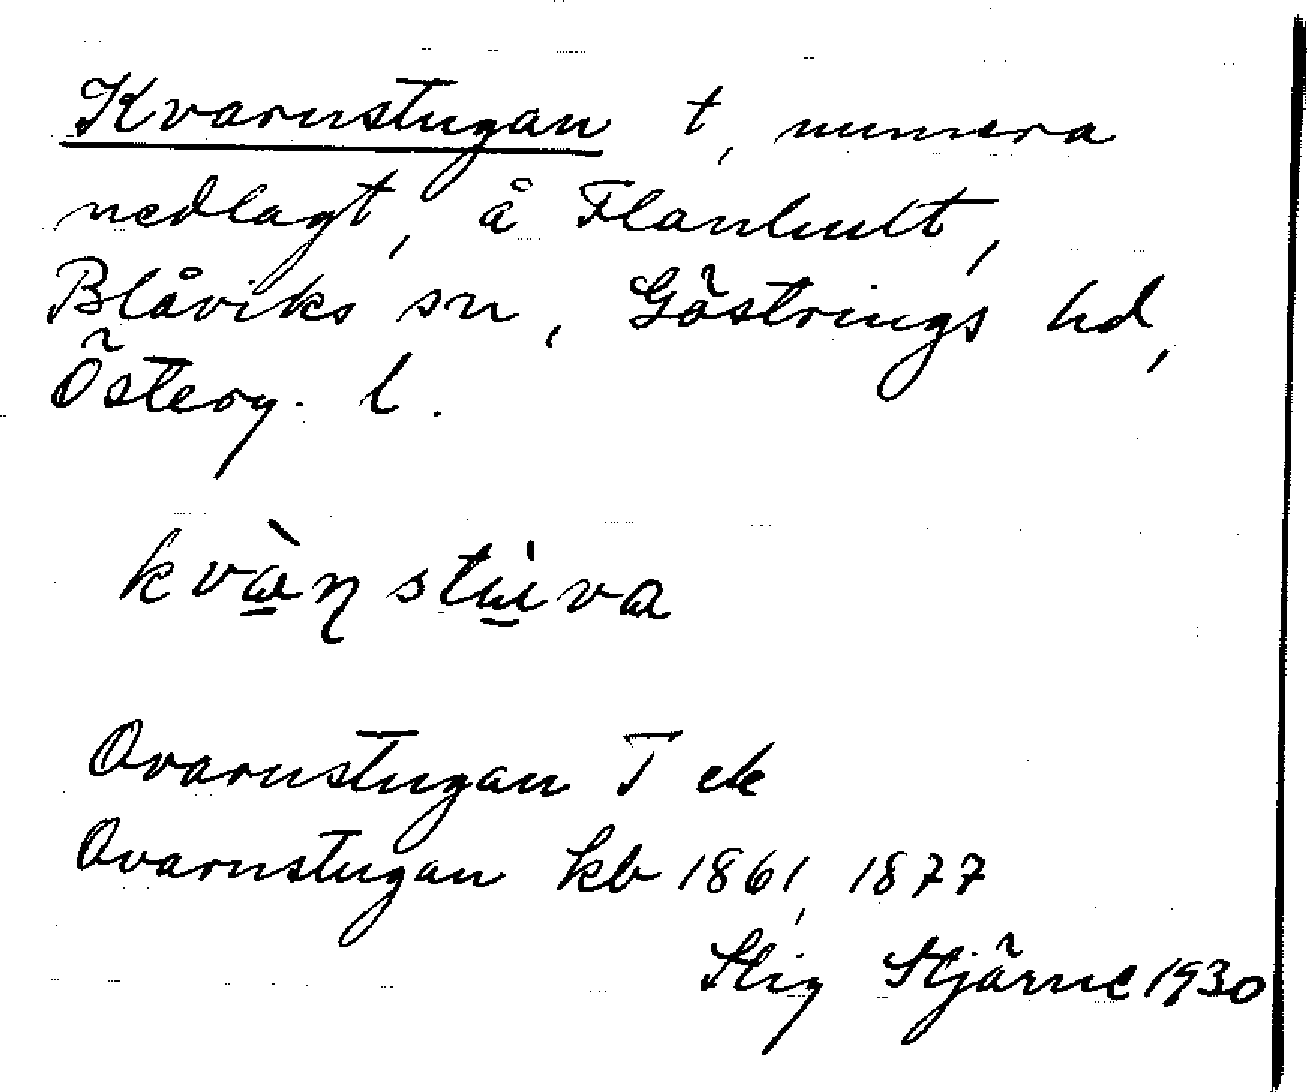 Kvarnstugan t, numera
nedlagt, å Flanhult,
Blåviks sn, Göstrings hd,
Österg. l.
Qvarnstugan T ek
Qvarnstugan kb 1861, 1877
Stig Stjärne 1930